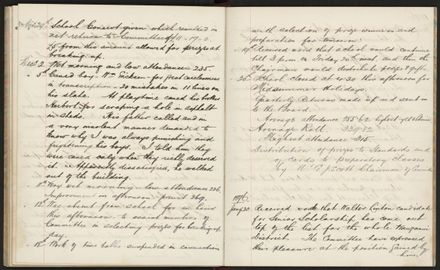 24 School Concert given which resulted in
nett return to Committee of £11.17.0.
£4 from this amount allowed for prizes at
breaking up.
2. Wet morning and low attendance 235.
5th Caned boy Wm Dicken - for great carelessness
in transcription, 20 mistakes in 11 lines on
his slate. At playtime caned his brother
Herbert for scraping a hole in asphalt
in slide. His father called and in
a very insolent manner demanded to
know why I was always punishing and
frightening his boys. I told him they
were caned only when they really deserved
it. Apparently dissatisfied, he walked
out of the building.
8th Very wet morning - low attendance 226
Improved in afternoon - present 269.
12th Was absent from school for an hour
this afternoon to assist members of
Committee in selecting prizes for breaking up
day.
18th Work of time tables suspended in connection
with selection of prize winners and
preparation for tomorrow.
19th received word that school would continue
till 3 p.m. on Friday 20th and then the
Chairman would distribute prizes & gifts.
20th School closed at 4.30 this afternoon for
Midsummer Holidays.
Quarterly Returns made up and sent in
to the Board.
Average attendance
Average Roll
Highest Attendance
Distribution of prizes to Standards and
of cards to preparatory classes
by Chairman of Committee
1896
Jany 30 Received word that Walter Linton candidate
for Senior Scholarship has come out
top of the list for the whole Wanganui
District. The Committee have expressed
their pleasure at the position gained by
him.